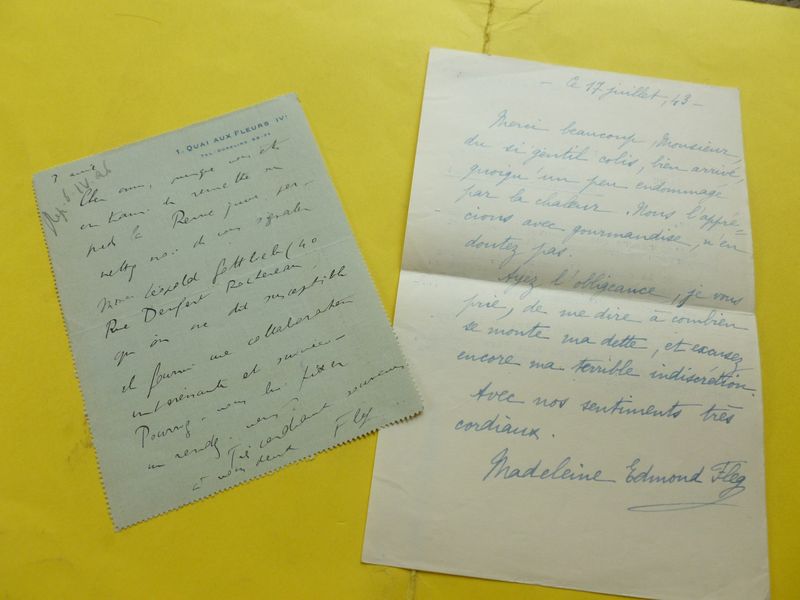 1. QUAI AUX FLEURS IVᵉ
Rep. 6. IV. 26
Cher ami, puisque vous êtes
en train de remettre sur
pied la Revue juive, per-
mettez-moi de vous signaler
Léopold Gottlieb (40
Rue Denfert Rochereau
qu'on me dit susceptible
de fournir une collaboration
intéressante et
Pourriez-vous lui fixer
un rendez-vous?
Très cordiaux souvenirs
à vous deux Fleg
— Ce 17 juillet, 43 —
Merci beaucoup, Monsieur,
du si gentil colis, bien arrivé,
quoiqu'un peu endommagé
par la chaleur. Nous l'appré-
cions avec gourmandise, n'en
doutez pas.
Ayez l'obligeance, je vous
prie, de me dire à combien
se monte ma dette, et excusez
encore ma terrible indiscrétion.
Avec nos sentiments très
cordiaux.
Madeleine Edmond Fleg